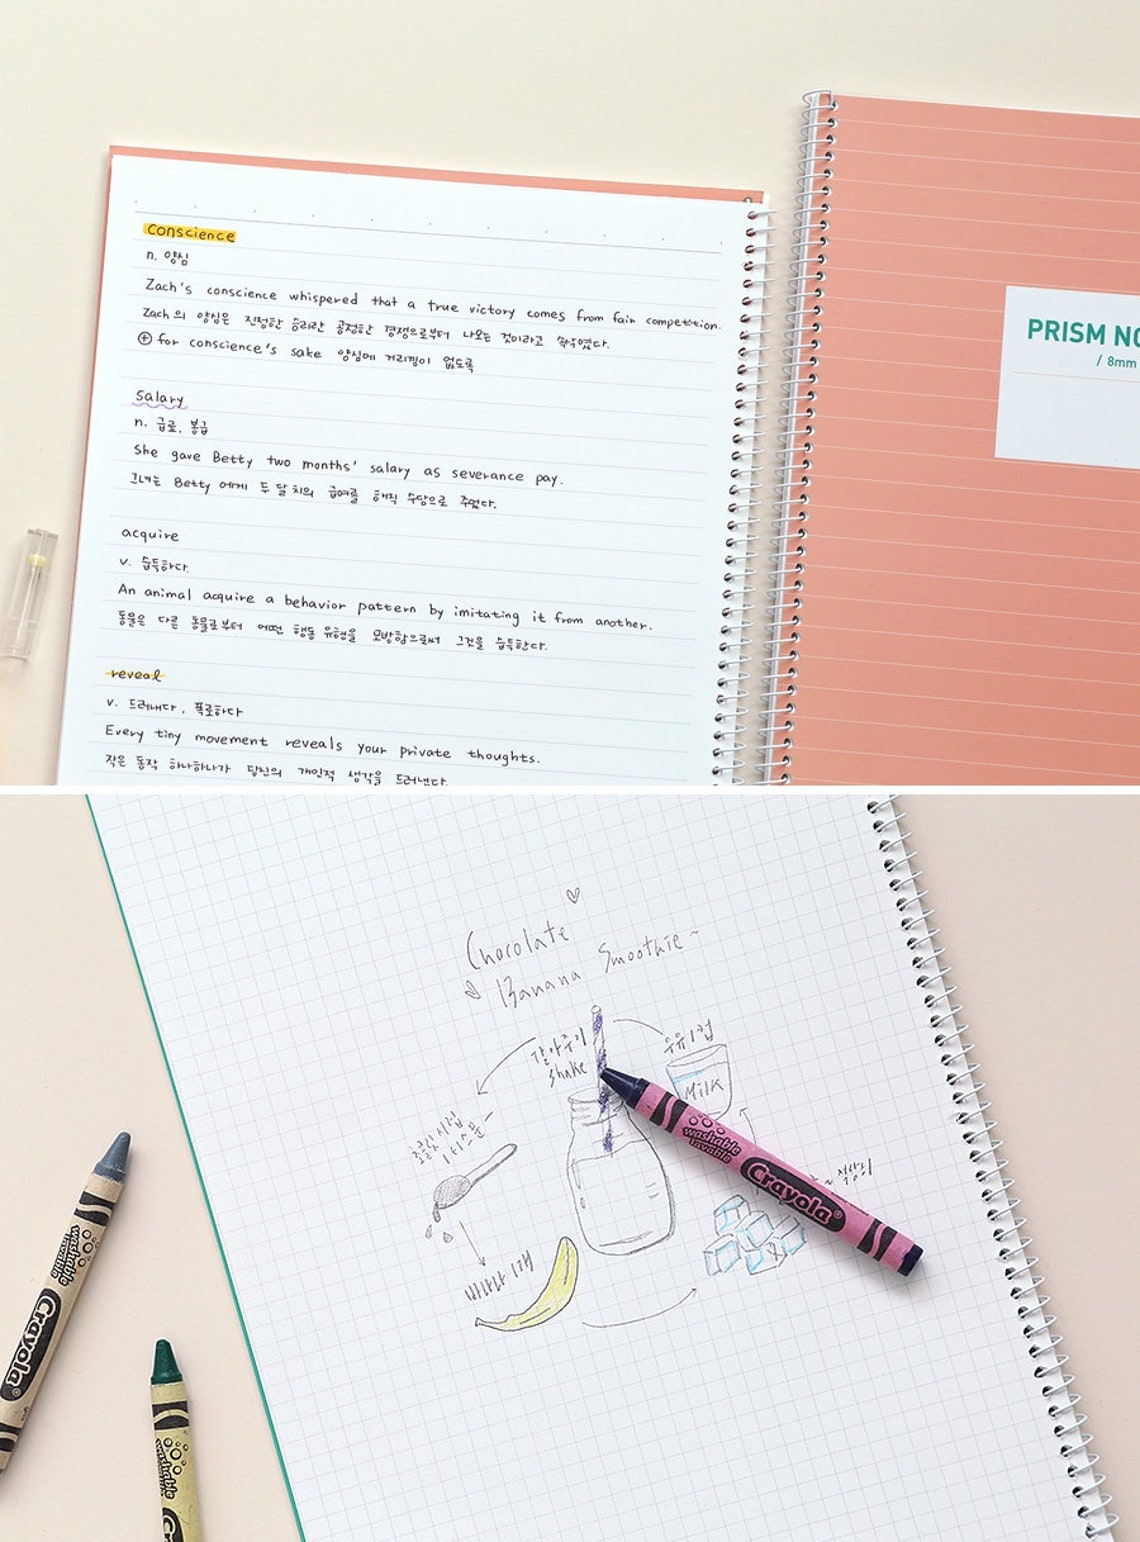 conscience
n. 양심
Zach's conscience whispered that a true victory comes from fair competition.
Zach의 양심은 진정한 승리란 공정한 경쟁으로부터 나오는 것이라고 속삭였다.
⊕ for conscience's sake 양심에 거리낌이 없도록
salary
n. 급료, 봉급
She gave Betty two months' salary as severance pay.
그녀는 Betty에게 두 달 치의 급여를 해직 수당으로 주었다.
acquire
v. 습득하다.
An animal acquire a behavior pattern by imitating it from another.
동물은 다른 동물로부터 어떤 행동 유형을 모방함으로써 그것을 습득한다.
reveal
v. 드러내다, 폭로하다
Every tiny movement reveals your private thoughts.
작은 동작 하나하나가 당신의 개인적 생각을 드러낸다.
PRISM NO
/ 8mm
Chocolate
Banana Smoothie~
갈아주기
shake
우유 1컵
Milk
초콜릿시럽
1티스푼~
바나나 1개
washable
lavable
Crayola
washable
lavable
Crayola
washable
lavable